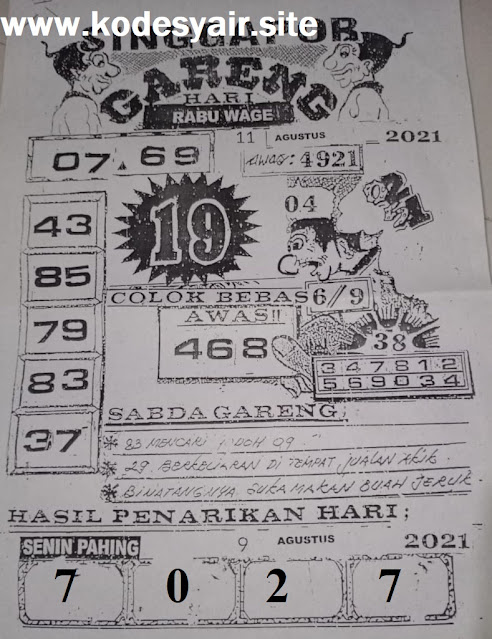 www.kodesyair.site
SINGGAPOR
GARENG
HARI
RABU WAGE
11 AGUSTUS 2021
07 69
AWAS: 4921
04
43
19
85
COLOK BEBAS 6/9
AWAS!!
79
468
38
347812
569034
83
37
SABDA GARENG;
* 83 MENCARI JODOH 09
* 29 BERKELIARAN DI TEMPAT JUALAN AKIK.
* BINATANGNYA SUKA MAKAN BUAH JERUK.
HASIL PENARIKAN HARI;
SENIN PAHING 9 AGUSTUS 2021
7 0 2 7